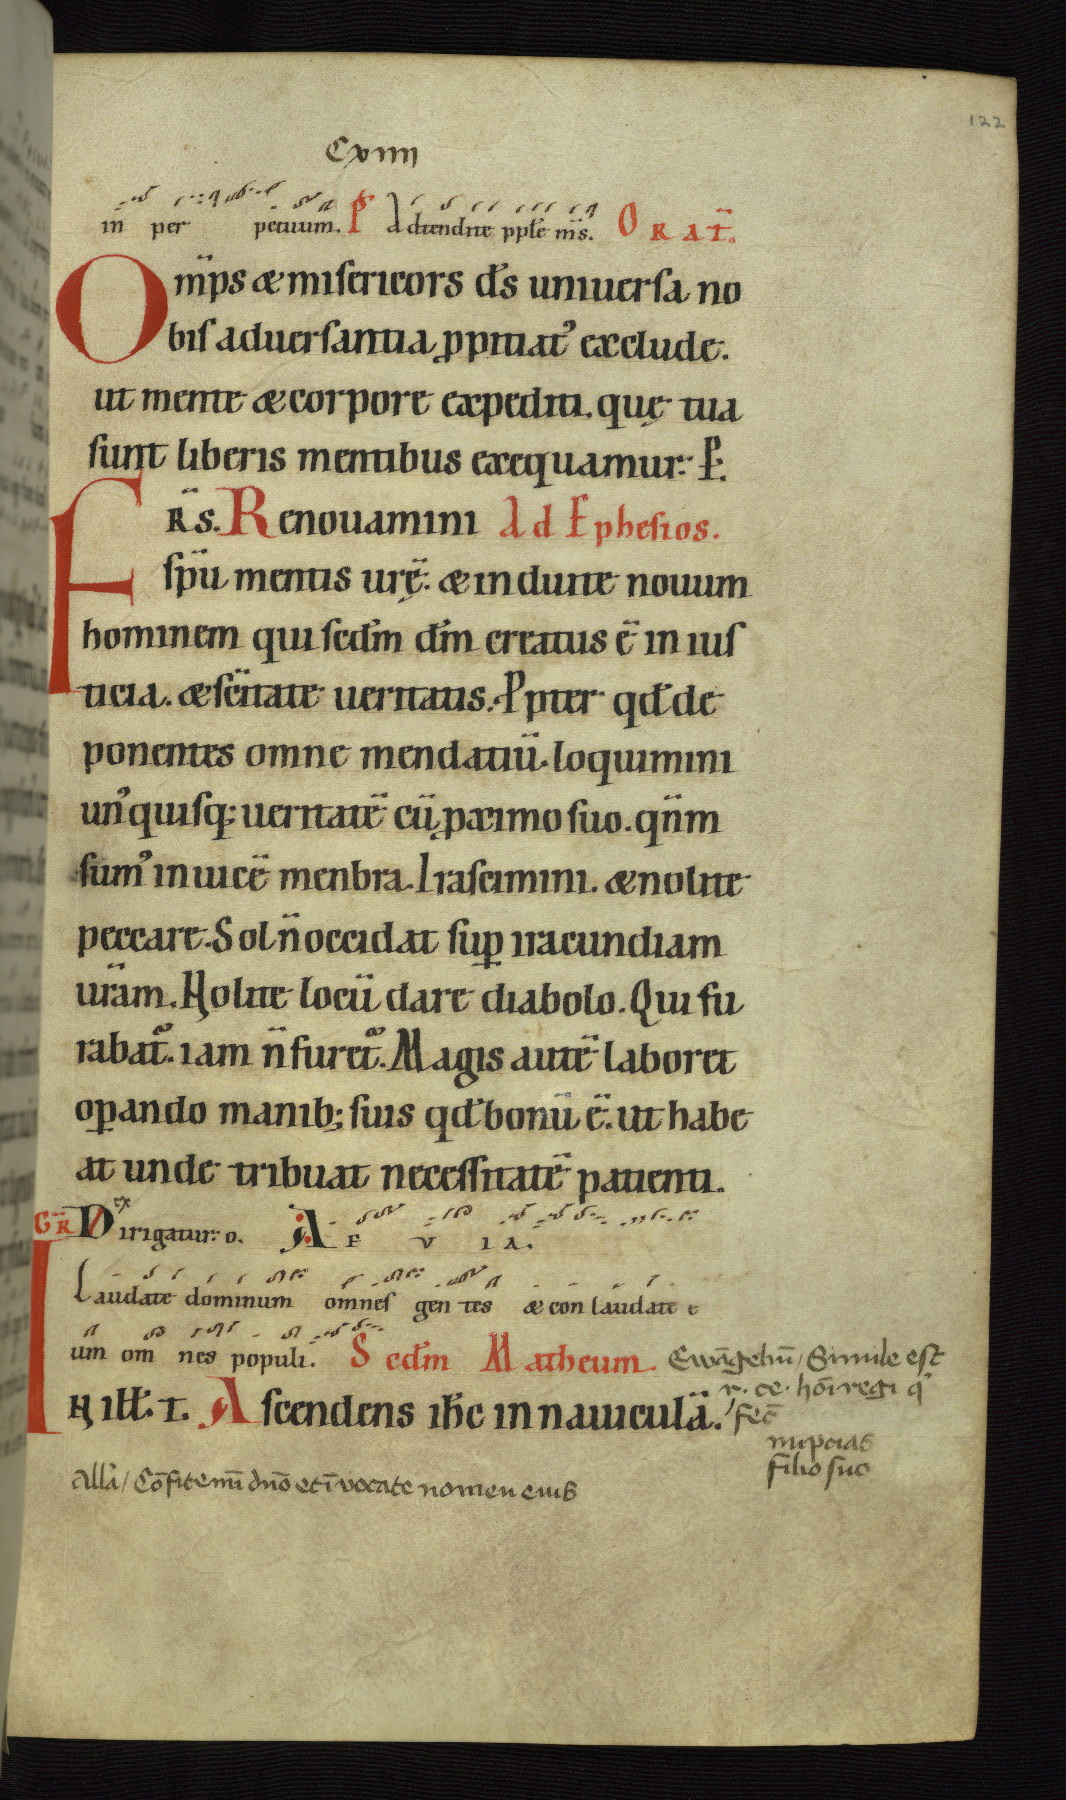 122
Cxiiij
in per petuum. Ps Adtendite pple ms. ORAT.
Omps & misericors ds uniuersa no
bis aduersantia ppitiat' exclude.
ut mente & corpore expediti. quę tua
sunt liberis mentibus exequamur: P.
FRS. Renouamini Ad Ephesios.
spu mentis urę: & induite nouum
hominem qui scdm dm creatus ē in ius
ticia. & scitate ueritatis. Ppter qd de
ponentes omne mendatiū. loquimini
un'quisq; ueritatē cū pximo suo. qnm
sum' inuicē menbra. Irascimini. & nolite
peccare. Sol n̄ occidat sup iracundiam
uram. Nolite locū dare diabolo. Qui fu
rabat. iam n̄ furet. Magis autē laboret
opando manib; suis qd bonū ē. ut habe
at unde tribuat necessitatē patienti.
GR Dirigatur: o. A E V I A.
Laudate dominum omnes gen tes & con laudate e
um om nes populi. Scdm Matheum. Ewāgeliū / Simile est
r. ce. hoī regi q'
IN ILL. T. Ascendens ihc in nauiculā. fec̄
nupcias
filio suo
Allā / Cōfitemī dnō et ī vocate nomen eius